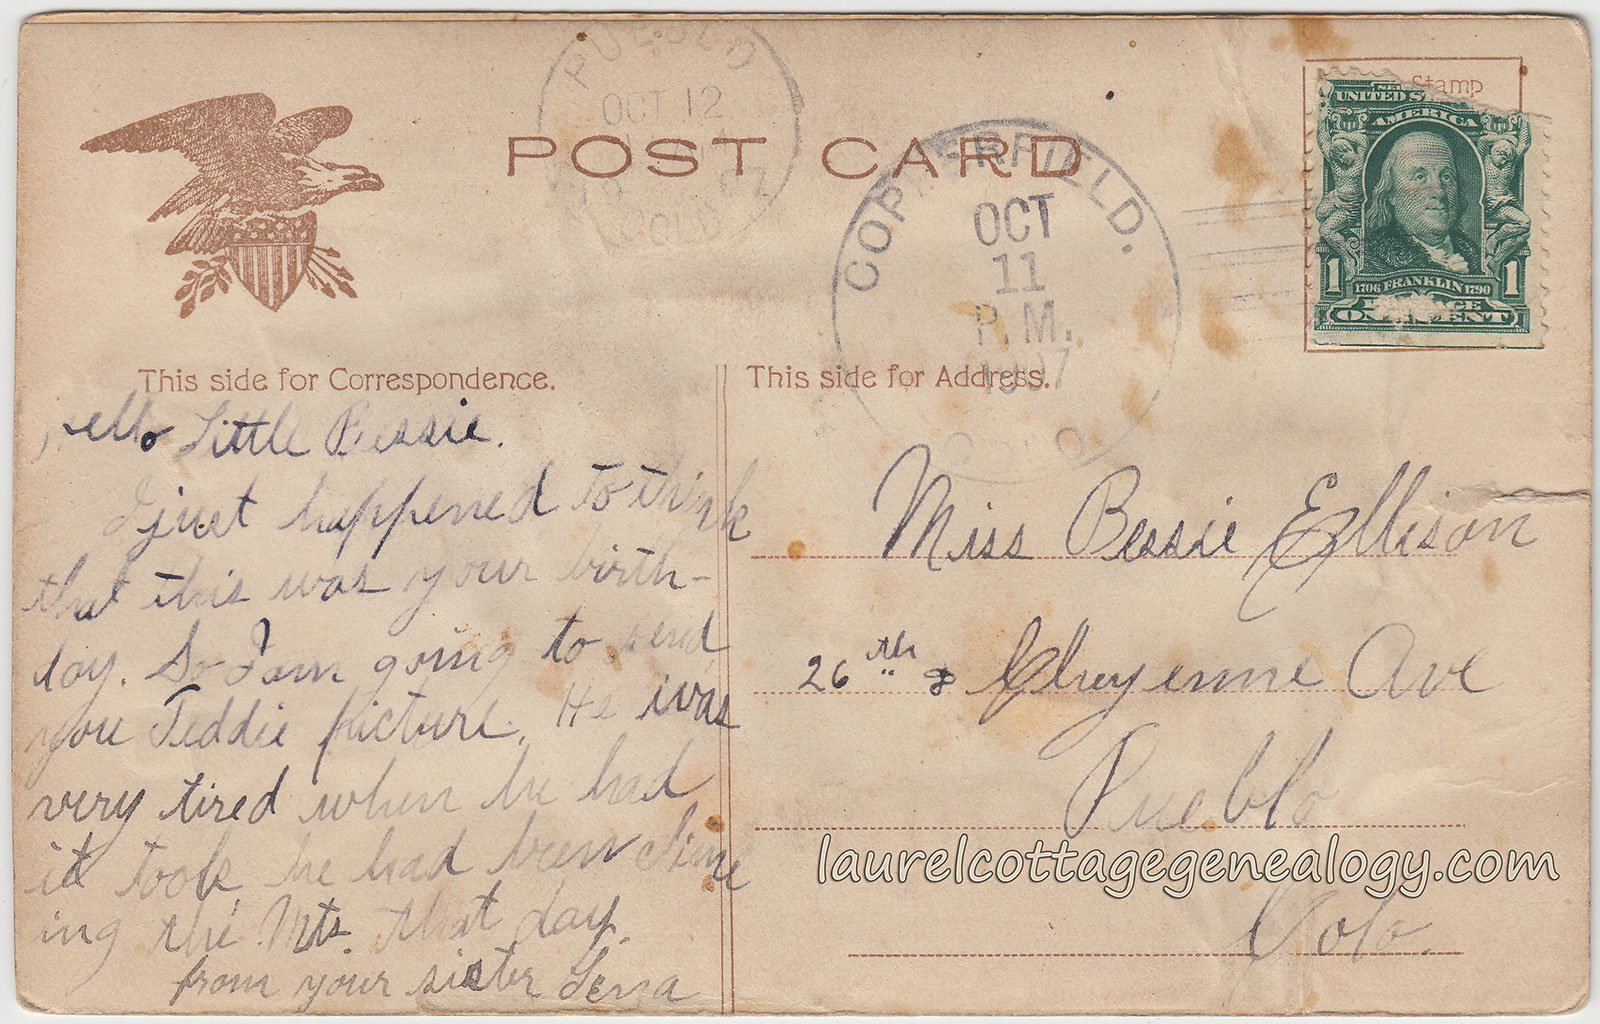 PUEBLO
OCT 12
COLO
POST CARD
COPPERFIELD.
OCT
11
P.M.
1907
COLO
Stamp
SERIES
UNITED STATES
AMERICA
1 1706 FRANKLIN 1790 1
POSTAGE
ONE CENT
This side for Correspondence.
Hello Little Bessie.
I just happened to think
that this was your birth-
day. So I am going to send
you Teddie picture. He was
very tired when he had
it took, he had been clime
ing the Mts. that day.
from your sister Lena
This side for Address.
Miss Bessie Ellison
26 th & Cheyenne Ave
Pueblo
Colo.
laurelcottagegenealogy.com